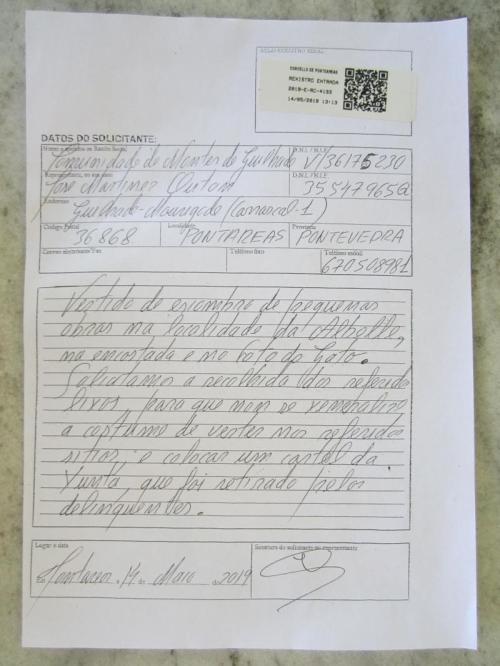 SELO REXISTRO XERAL
CONCELLO DE PONTEAREAS
REXISTRO ENTRADA
2019-E-RC-4153
14/05/2019 13:13
DATOS DO SOLICITANTE:
Nome e apelidos ou Razón Social
D.N.I. / N.I.F.
Comunidade de Montes de Guilhade
V/36175230
Representante, no seu caso
D.N.I. / N.I.F.
Jose Martinez
35547965Q
Enderezo
Guilhade - (Carrascal-1)
Código Postal
Localidade
Provincia
36868
PONTAREAS
PONTEVEDRA
Correo electrónico/Fax
Teléfono fixo
Teléfono móbil
670508981
Vertido de escombro de pequenas
obras na localidade da
na encostada e no do Gato.
Solicitamos a recolhida dos referidos
lixos para que non se xeneralize
a costume de verter nos referidos
sitios, e colocar um cartel da
Xunta que foi retirado pelos
delinquentes.
Lugar e data
Sinatura do solicitante ou representante
14 de Maio de 2019